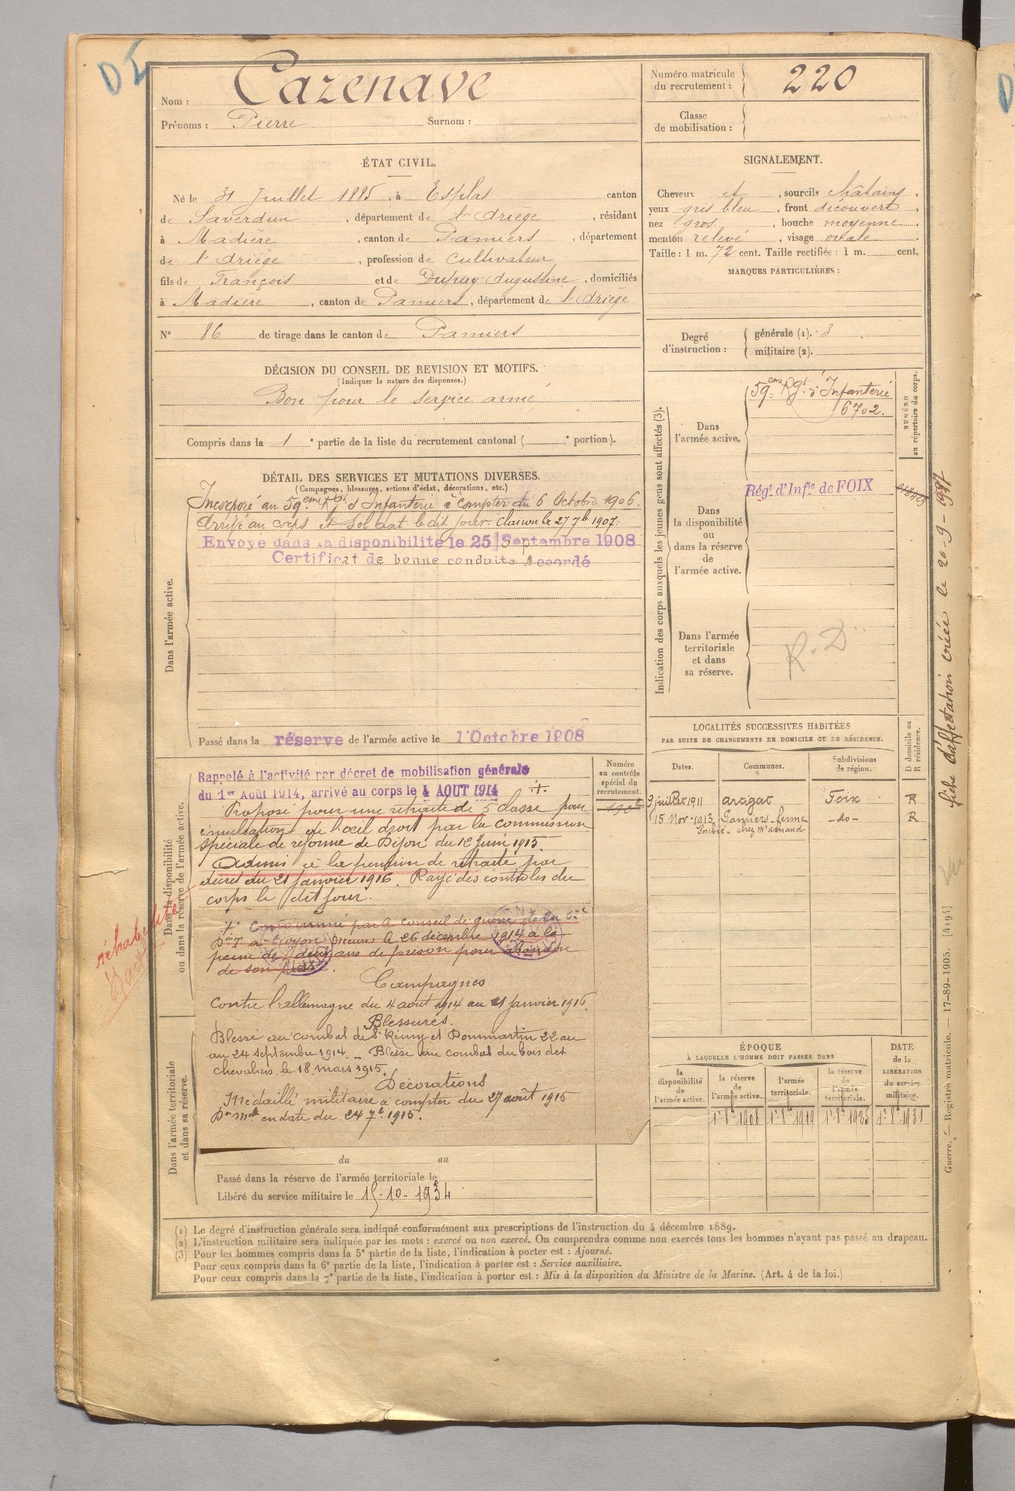 DI
Nom : Cazenave
Prénoms : Pierre Surnom :
Numéro matricule du recrutement : 220
Classe de mobilisation :
ÉTAT CIVIL.
Né le 31 Juillet 1885, à Esplas canton
de Saverdun, département de l'Ariège, résidant
à Madière, canton de Pamiers, département
de l'Ariège, profession de cultivateur
fils de François et de Dupuy Augustine, domiciliés
à Madière, canton de Pamiers, département de l'Ariège
N° 86 de tirage dans le canton de Pamiers
SIGNALEMENT.
Cheveux et, sourcils châtains.
yeux gris bleu, front découvert
nez gros, bouche moyenne
menton relevé, visage ovale
Taille : 1 m. 72 cent. Taille rectifiée : 1 m. cent.
MARQUES PARTICULIÈRES :
Degré d'instruction : générale (1). 3
militaire (2).
DÉCISION DU CONSEIL DE REVISION ET MOTIFS.
(Indiquer la nature des dispenses.)
Bon pour le service armé
Compris dans la 1e partie de la liste du recrutement cantonal ( e portion).
DÉTAIL DES SERVICES ET MUTATIONS DIVERSES.
(Campagnes, blessures, actions d'éclat, décorations, etc.)
Dans l'armée active.
Incorporé au 59eme Rgt d'Infanterie à compter du 6 Octobre 1906.
Arrivé au corps et soldat le dit jour. Clairon le 27 7b 1907.
Envoyé dans la disponibilité le 25 Septembre 1908
Certificat de bonne conduite Accordé
Passé dans la réserve de l'armée active le 1 Octobre 1908
Dans la disponibilité ou dans la réserve de l'armée active.
Rappelé à l'activité par décret de mobilisation générale
du 1er Août 1914, arrivé au corps le 4 AOUT 1914 +
Proposé pour une retraite de 5 classe pour
énucléation de l'œil droit par la commission
spéciale de réforme de Dijon du 12 juin 1915.
Admis à la pension de retraite par
décret du 21 janvier 1916. Rayé des contrôles du
corps le dit jour.
+ Condamné par le conseil de guerre de la
à Troyon le 26 décembre 1914 à la
peine de deux ans de prison pour abandon
de son poste.
réhabilité
Campagnes
Contre l'allemagne du 4 août 1914 au 21 janvier 1916
Blessures.
Blessé au combat de St Rémy et Dommartin 22 au
au 24 septembre 1914. – Blessé au combat du bois des
chevaliers, le 18 mars 1915.
Décorations
Médaille militaire à compter du 27 août 1915
en date du 24 7b 1915.
Dans l'armée territoriale et dans sa réserve.
du au
Passé dans la réserve de l'armée territoriale le
Libéré du service militaire le 15-10-1934
Numéro au contrôle spécial du recrutement.
Indication des corps auxquels les jeunes gens sont affectés (3).
NUMÉRO au répertoire du corps.
Dans l'armée active.
59eme Rgt d'Infanterie
6702.
Dans la disponibilité ou dans la réserve de l'armée active.
Régt d'Infie de FOIX
Dans l'armée territoriale et dans sa réserve.
R.D
LOCALITÉS SUCCESSIVES HABITÉES
PAR SUITE DE CHANGEMENTS DE DOMICILE OU DE RÉSIDENCE.
Dates. Communes. Subdivisions de région. D domicile ou R résidence.
3 juillet 1911 Foix R
15 Nov. 1913 Pamiers - ferme -do- R
ÉPOQUE
À LAQUELLE L'HOMME DOIT PASSER DANS
DATE de la LIBÉRATION du service militaire.
la disponibilité de l'armée active.
la réserve de l'armée active.
l'armée territoriale.
la réserve de l'armée territoriale.
(1) Le degré d'instruction générale sera indiqué conformément aux prescriptions de l'instruction du 4 décembre 1889.
(2) L'instruction militaire sera indiquée par les mots : exercé ou non exercé. On comprendra comme non exercés tous les hommes n'ayant pas passé au drapeau.
(3) Pour les hommes compris dans la 5e partie de la liste, l'indication à porter est : Ajourné.
Pour ceux compris dans la 6e partie de la liste, l'indication à porter est : Service auxiliaire.
Pour ceux compris dans la 7e partie de la liste, l'indication à porter est : Mis à la disposition du Ministre de la Marine. (Art. 4 de la loi.)
Guerre. – Registre matricule. — 17-89-1905. [4194]
fiche d'affectation créée le 20-9-